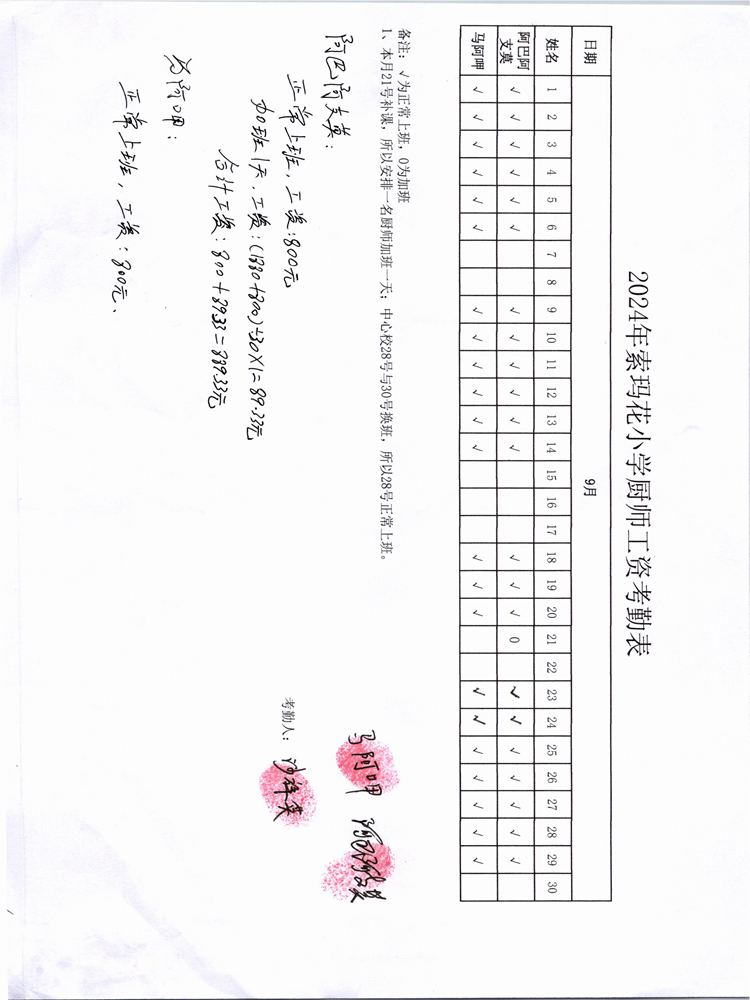 2024年索玛花小学厨师工资考勤表
日期 9月
姓名 1 2 3 4 5 6 7 8 9 10 11 12 13 14 15 16 17 18 19 20 21 22 23 24 25 26 27 28 29 30
阿巴阿支莫 √ √ √ √ √ √ √ √ √ √ √ √ √ √ √ 0 √ √ √ √ √ √ √
马阿呷 √ √ √ √ √ √ √ √ √ √ √ √ √ √ √ √ √ √ √ √ √ √
备注：√为正常上班，0为加班
1、本月21号补课，所以安排一名厨师加班一天；中心校28号与30号换班，所以28号正常上班。
阿巴阿支莫：
正常上班，工资：800元
加班1天，工资：(1880+800)÷30×1=89.33元
合计工资：800+89.33=889.33元
马阿呷：
正常上班，工资：800元、
马阿呷
考勤人：